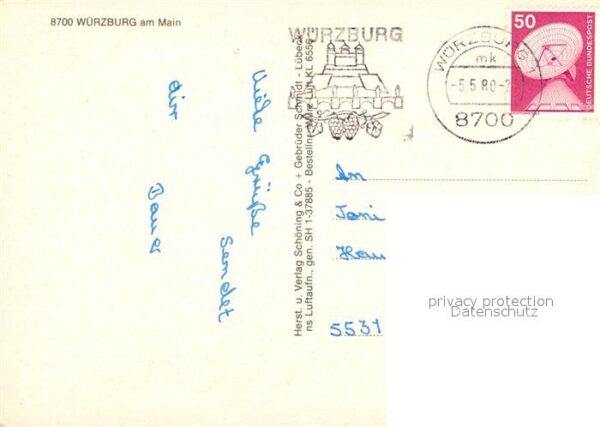 8700 WÜRZBURG am Main
Viele Grüße
sendet
dir
Herst. u. Verlag Schöning & Co + Gebrüder Schmidt - Lübeck
ns Luftaufn., gen. SH 1-37885 - Bestellnr.
WÜRZBURG
WÜRZBURG
mk
-5.5.80-2
8700
50
DEUTSCHE BUNDESPOST
An
Toni
5531
privacy protection
Datenschutz